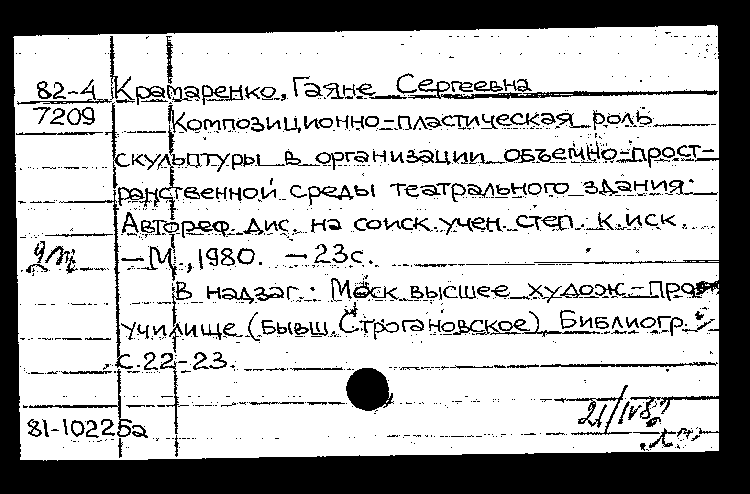 82-4 Крамаренко, Гаяне Сергеевна
7209 Композиционно-пластическая роль
скульптуры в организации объемно-прост-
ранственной среды театрального здания:
Автореф. дис. на соиск. учен. степ. к. иск.
2т — М., 1980. — 23с.
В надзаг.: Моск. высшее худож.-пром.
училище (бывш. Строгановское). Библиогр.:
с. 22-23.
21/IV82
81-10225а